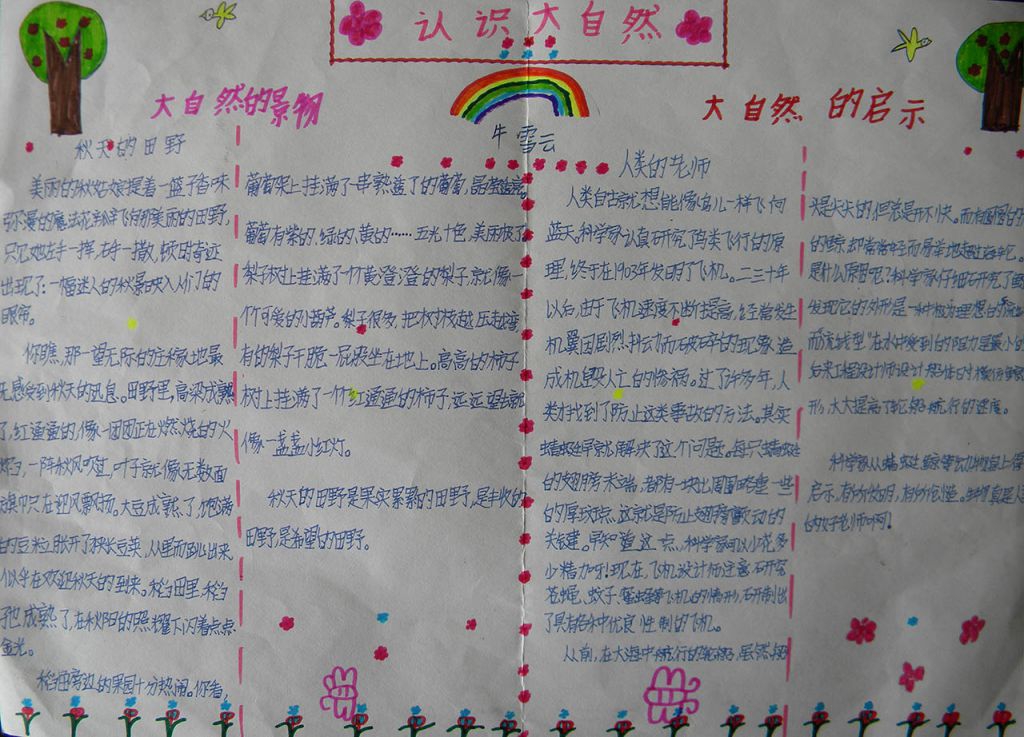 认识大自然
大自然的景物
牛雪云
秋天的田野
美丽的秋姑娘提着一篮子香味
弥漫的魔法花瓣飞向那美丽的田野,
只见她左手一挥,右手一撒,秋的奇迹
出现了:一幅迷人的秋景映入人们的
眼帘。
你瞧,那一望无际的庄稼地最
先感受到秋天的讯息。田野里,高粱成熟
了,红通通的,像一团团正在燃烧的火
焰,一阵秋风吹过,叶子就像无数面
旗帜在迎风飘扬。大豆成熟了,饱满
的豆粒胀开了豆荚,从里面蹦出来
似乎在欢迎秋天的到来。稻田里,稻
子也成熟了,在秋阳的照耀下闪着点点
金光。
稻田旁边的果园十分热闹。你看,
葡萄架上挂满了一串串熟透了的葡萄,晶莹透亮。
葡萄有紫的、绿的、黄的……五光十色,美丽极了。
梨子树上挂满了个个黄澄澄的梨子,就像一
个个可爱的小葫芦。梨子很多,把树枝越压越弯,
有的梨子干脆一屁股坐在地上。高高的柿子
树上挂满了一个个红通通的柿子,远远望去都
像一盏盏小红灯。
秋天的田野是果实累累的田野,是丰收的
田野,是希望的田野。
大自然的启示
人类的老师
人类自古就想能像鸟儿一样飞向
蓝天。科学家认真研究了鸟类飞行的原
理,终于在1903年发明了飞机。二三十年
以后,由于飞机速度不断提高,经常发生
机翼因剧烈抖动而破碎的现象,造
成机毁人亡的惨祸。过了许多年,人
类才找到了防止这类事故的方法。其实
蜻蜓早就解决了这个问题。每只蜻蜓
的翅膀末端,都有一块比周围略重一些
的厚斑点,这就是防止翅膀颤动的
关键。早知道这一点,科学家可以少花多
少精力呀!现在,飞机设计师注意研究
苍蝇、蚊子、蜜蜂等飞机的情形,研制出
了具有各种优良性制的飞机。
从前,在大海中航行的轮船,虽然船
头是尖尖的,但总是开不快。而有圆圆的
的鲸,却常常轻而易举地超过海轮。
是什么原因呢?科学家仔细研究了鲸
发现它的外形是一种极为理想的
而"流线型"在水中受到的阻力是最小的
后来工程设计师设计船体时模仿鲸
形,大大提高了轮船航行的速度。
科学家从蜻蜓、鲸等动物身上得
启示,有所发明,有所创造。生物真是人
的好老师啊。